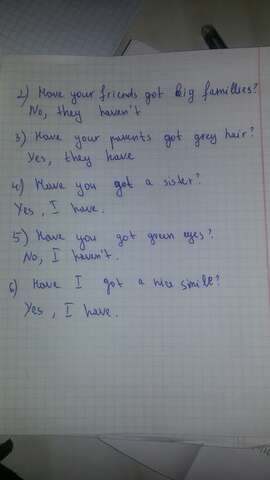 2) Have your friends got big families?
No, they haven't
3) Have your parents got grey hair?
Yes, they have
4) Have you got a sister?
Yes, I have.
5) Have you got green eyes?
No, I haven't.
6) Have I got a nice smile?
Yes, I have.